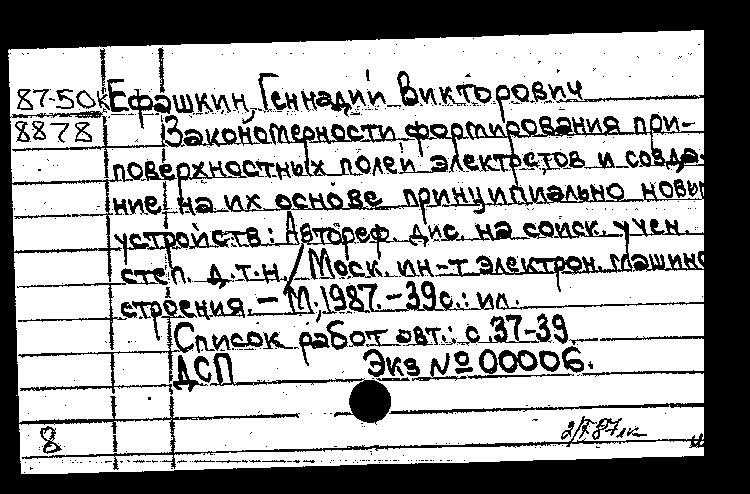 87-50к Ефашкин, Геннадий Викторович
8878 Закономерности формирования при-
поверхностных полей электретов и созда-
ние на их основе принципиально новы
устройств: Автореф. дис. на соиск. учен.
степ. д.т.н./ Моск. ин-т электрон. машино
строения. – М., 1987. – 39с.: ил.
Список работ авт.: с. 37-39.
ДСП Экз № 00006.
8